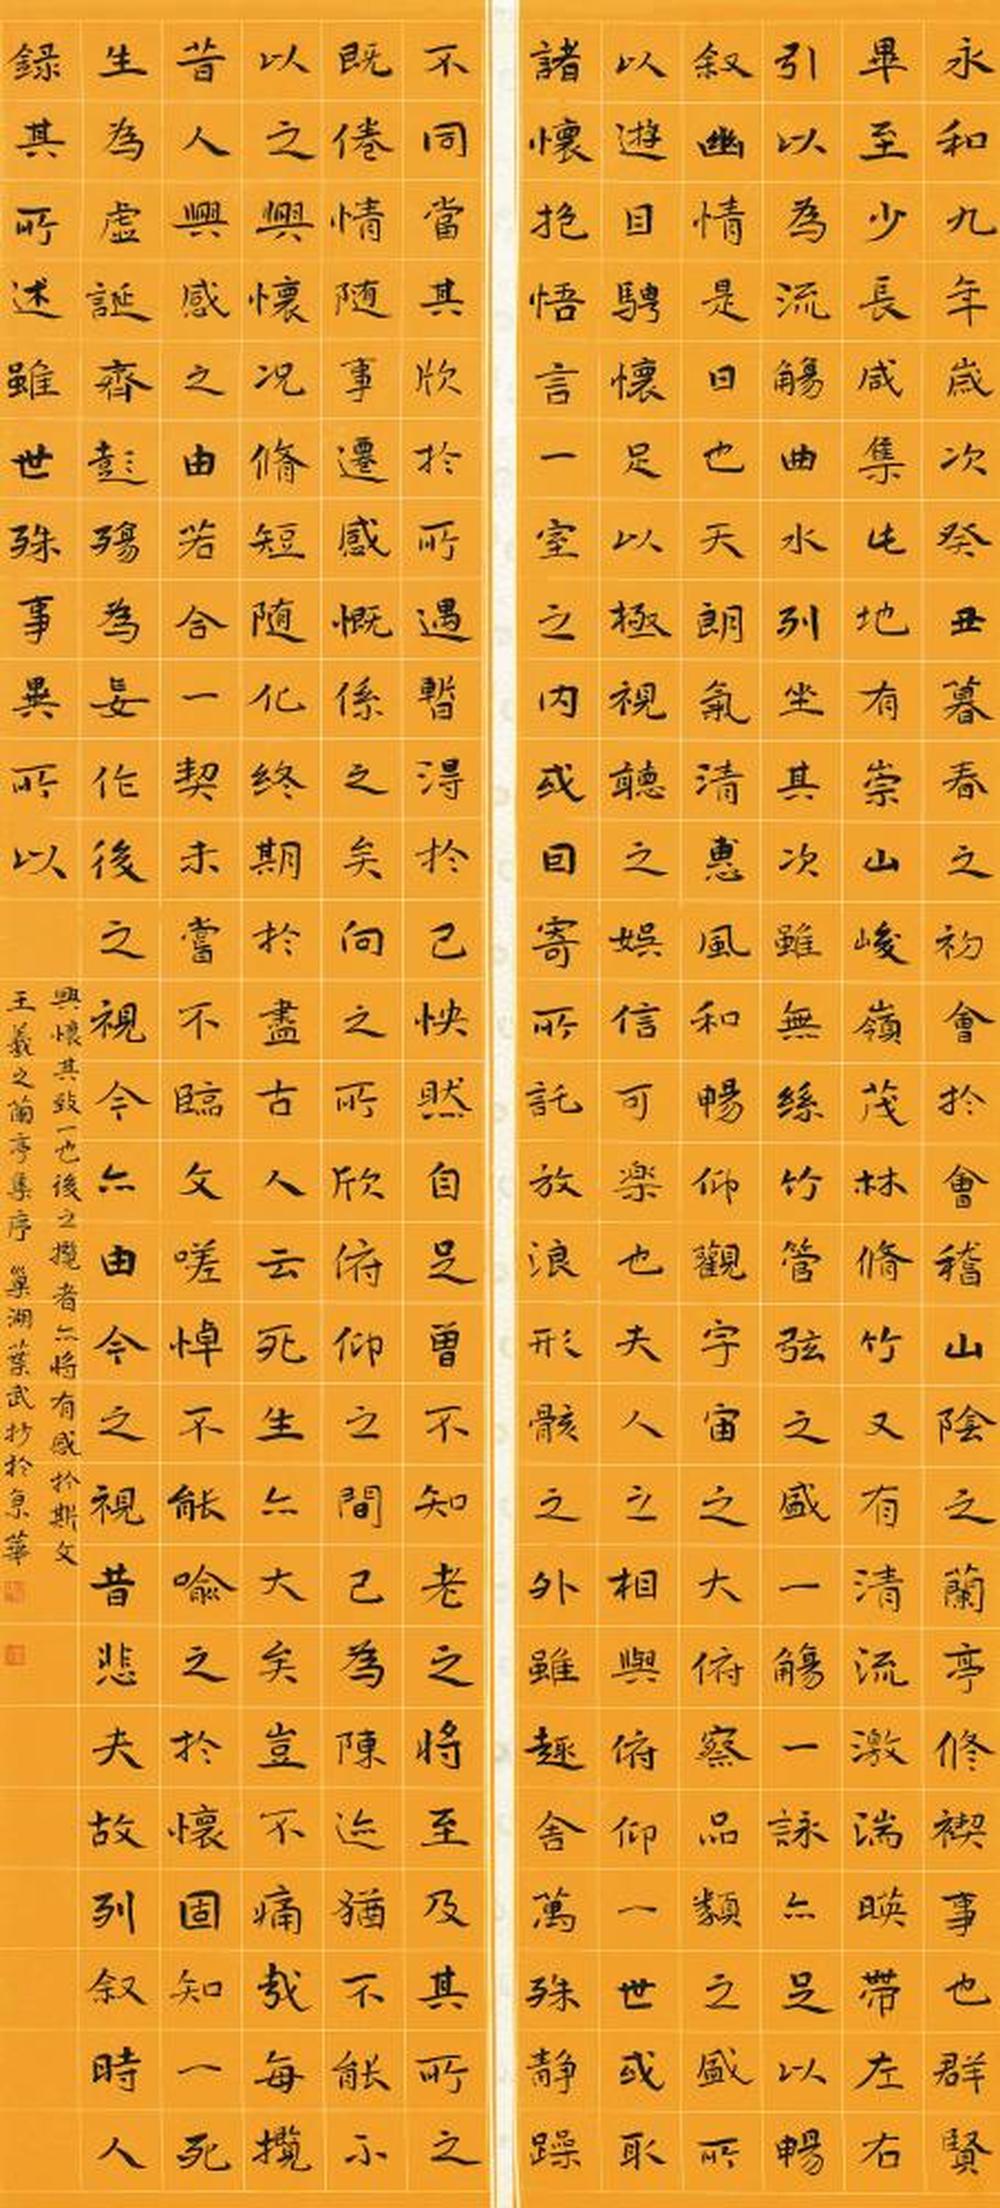 永和九年歲次癸丑暮春之初會於會稽山陰之蘭亭修禊事也群賢
畢至少長咸集此地有崇山峻嶺茂林脩竹又有清流激湍暎帶左右
引以為流觴曲水列坐其次雖無絲竹管弦之盛一觴一詠亦足以暢
叙幽情是日也天朗氣清惠風和暢仰觀宇宙之大俯察品類之盛所
以遊目騁懷足以極視聽之娛信可樂也夫人之相與俯仰一世或取
諸懷抱悟言一室之內或因寄所託放浪形骸之外雖趣舍萬殊静躁
不同當其欣於所遇暫得於己怏然自足曾不知老之將至及其所之
既倦情随事遷感慨係之矣向之所欣俯仰之間已為陳迹猶不能不
以之興懷况脩短随化終期於盡古人云死生亦大矣豈不痛哉每攬
昔人興感之由若合一契未嘗不臨文嗟悼不能喻之於懷固知一死
生為虛誕齊彭殤為妄作後之視今亦由今之視昔悲夫故列叙時人
録其所述雖世殊事異所以
興懷其致一也後之攬者亦将有感於斯文
王羲之蘭亭集序巢湖葉武抄於京華